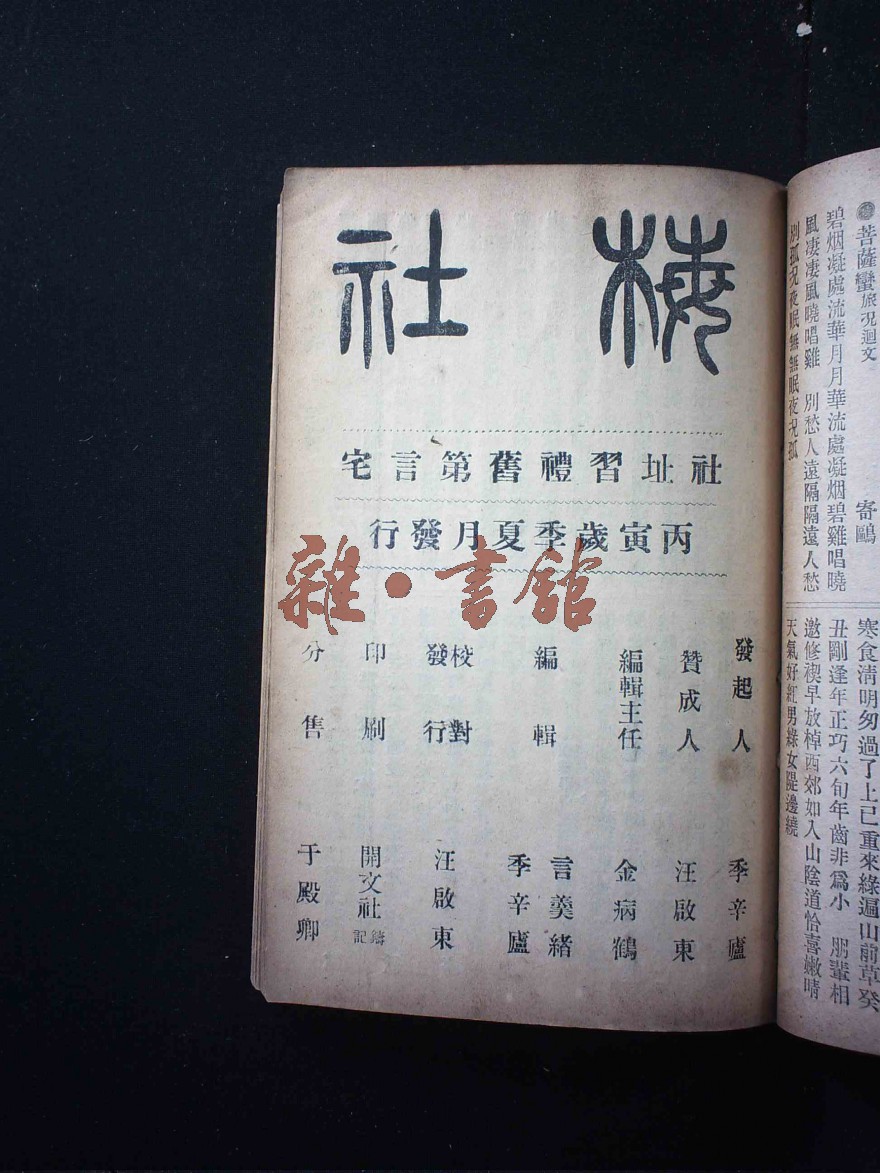 ●菩薩蠻旅况迴文
寄鷗
碧烟凝處流華月月華流處凝烟碧雞唱曉
風凄凄風曉唱雞　別愁人遠隔隔遠人愁
別孤况夜眠無無眠夜况孤
寒食清明匆過了上已重來綠遍山前草癸
丑剛逢年正巧六旬年齒非爲小　朋輩相
邀修禊早放棹西郊如入山陰道恰喜嫩晴
天氣好紅男綠女隄邊繞
梅社
社址習禮舊第言宅
丙寅歲季夏月發行
發起人　季辛廬
贊成人　汪啟東
編輯主任　金病鶴
編輯　言羹緒
季辛廬
校對
發行　汪啟東
印刷　開文社鑄記
分售　于殿卿
雜·書館